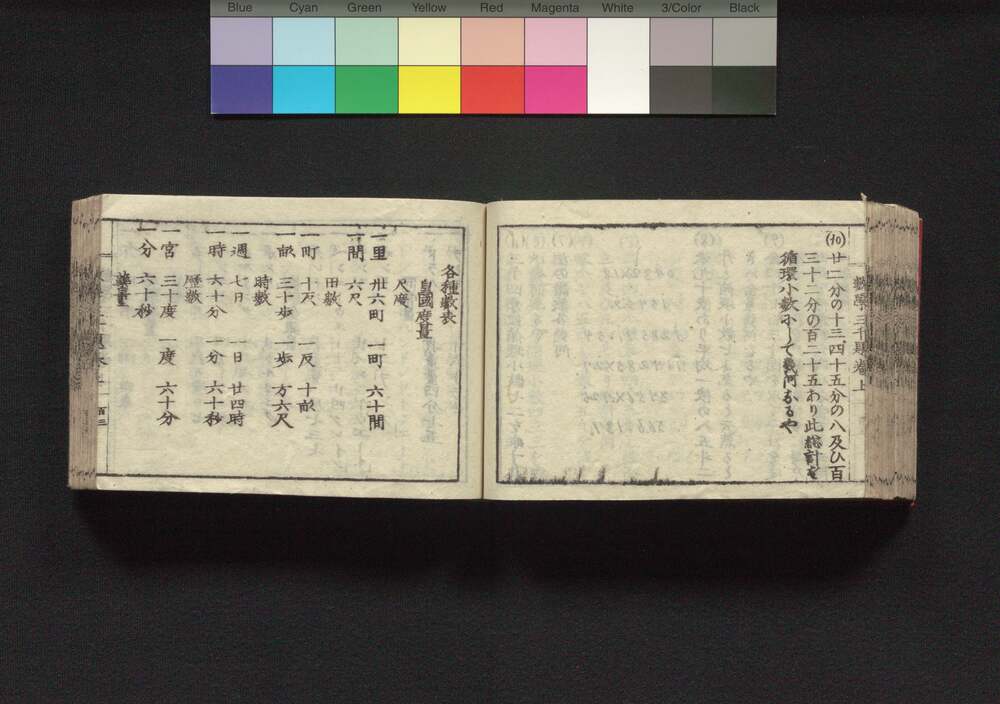 Blue Cyan Green Yellow Red Magenta White 3/Color Black
數學三千題卷上
(40) 廿二分の十三四十五分の八及ひ百
三十二分の百二十五あり此總計を
循環小數にして幾何なるや
各種數表
皇國度量
尺度
一里 卅六町 一町 六十間
一間 六尺
田數
一町 十反 一反 十畝
一畝 三十歩 一歩 方六尺
時數
一週 七日 一日 廿四時
一時 六十分 一分 六十秒
曆數
一宮 三十度 一度 六十分
一分 六十秒